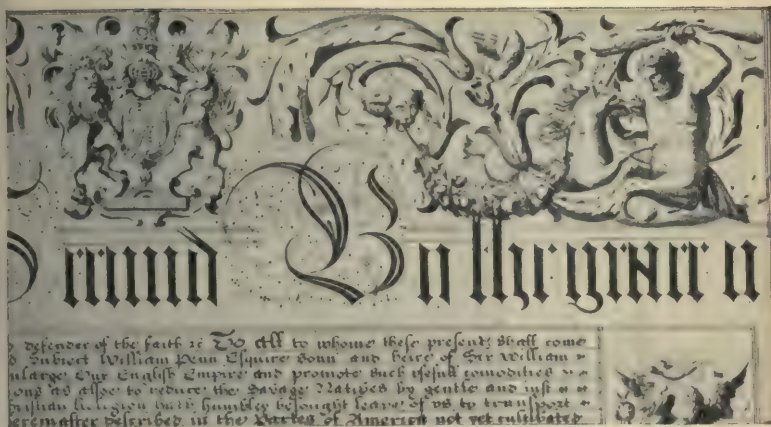 econd By the grace o
defender of the faith &c To all to whome these presents shall come
Subiect William Penn Esquire Sonn and heire of Sir William
nlarge Our English Empire and promote such usefull comodities
ons as alsoe to reduce the Savage Natives by gentle and iust
ristian Religion hath humbley besought leave of us to transport
ereinafter described in the Partes of America not yet cultivated